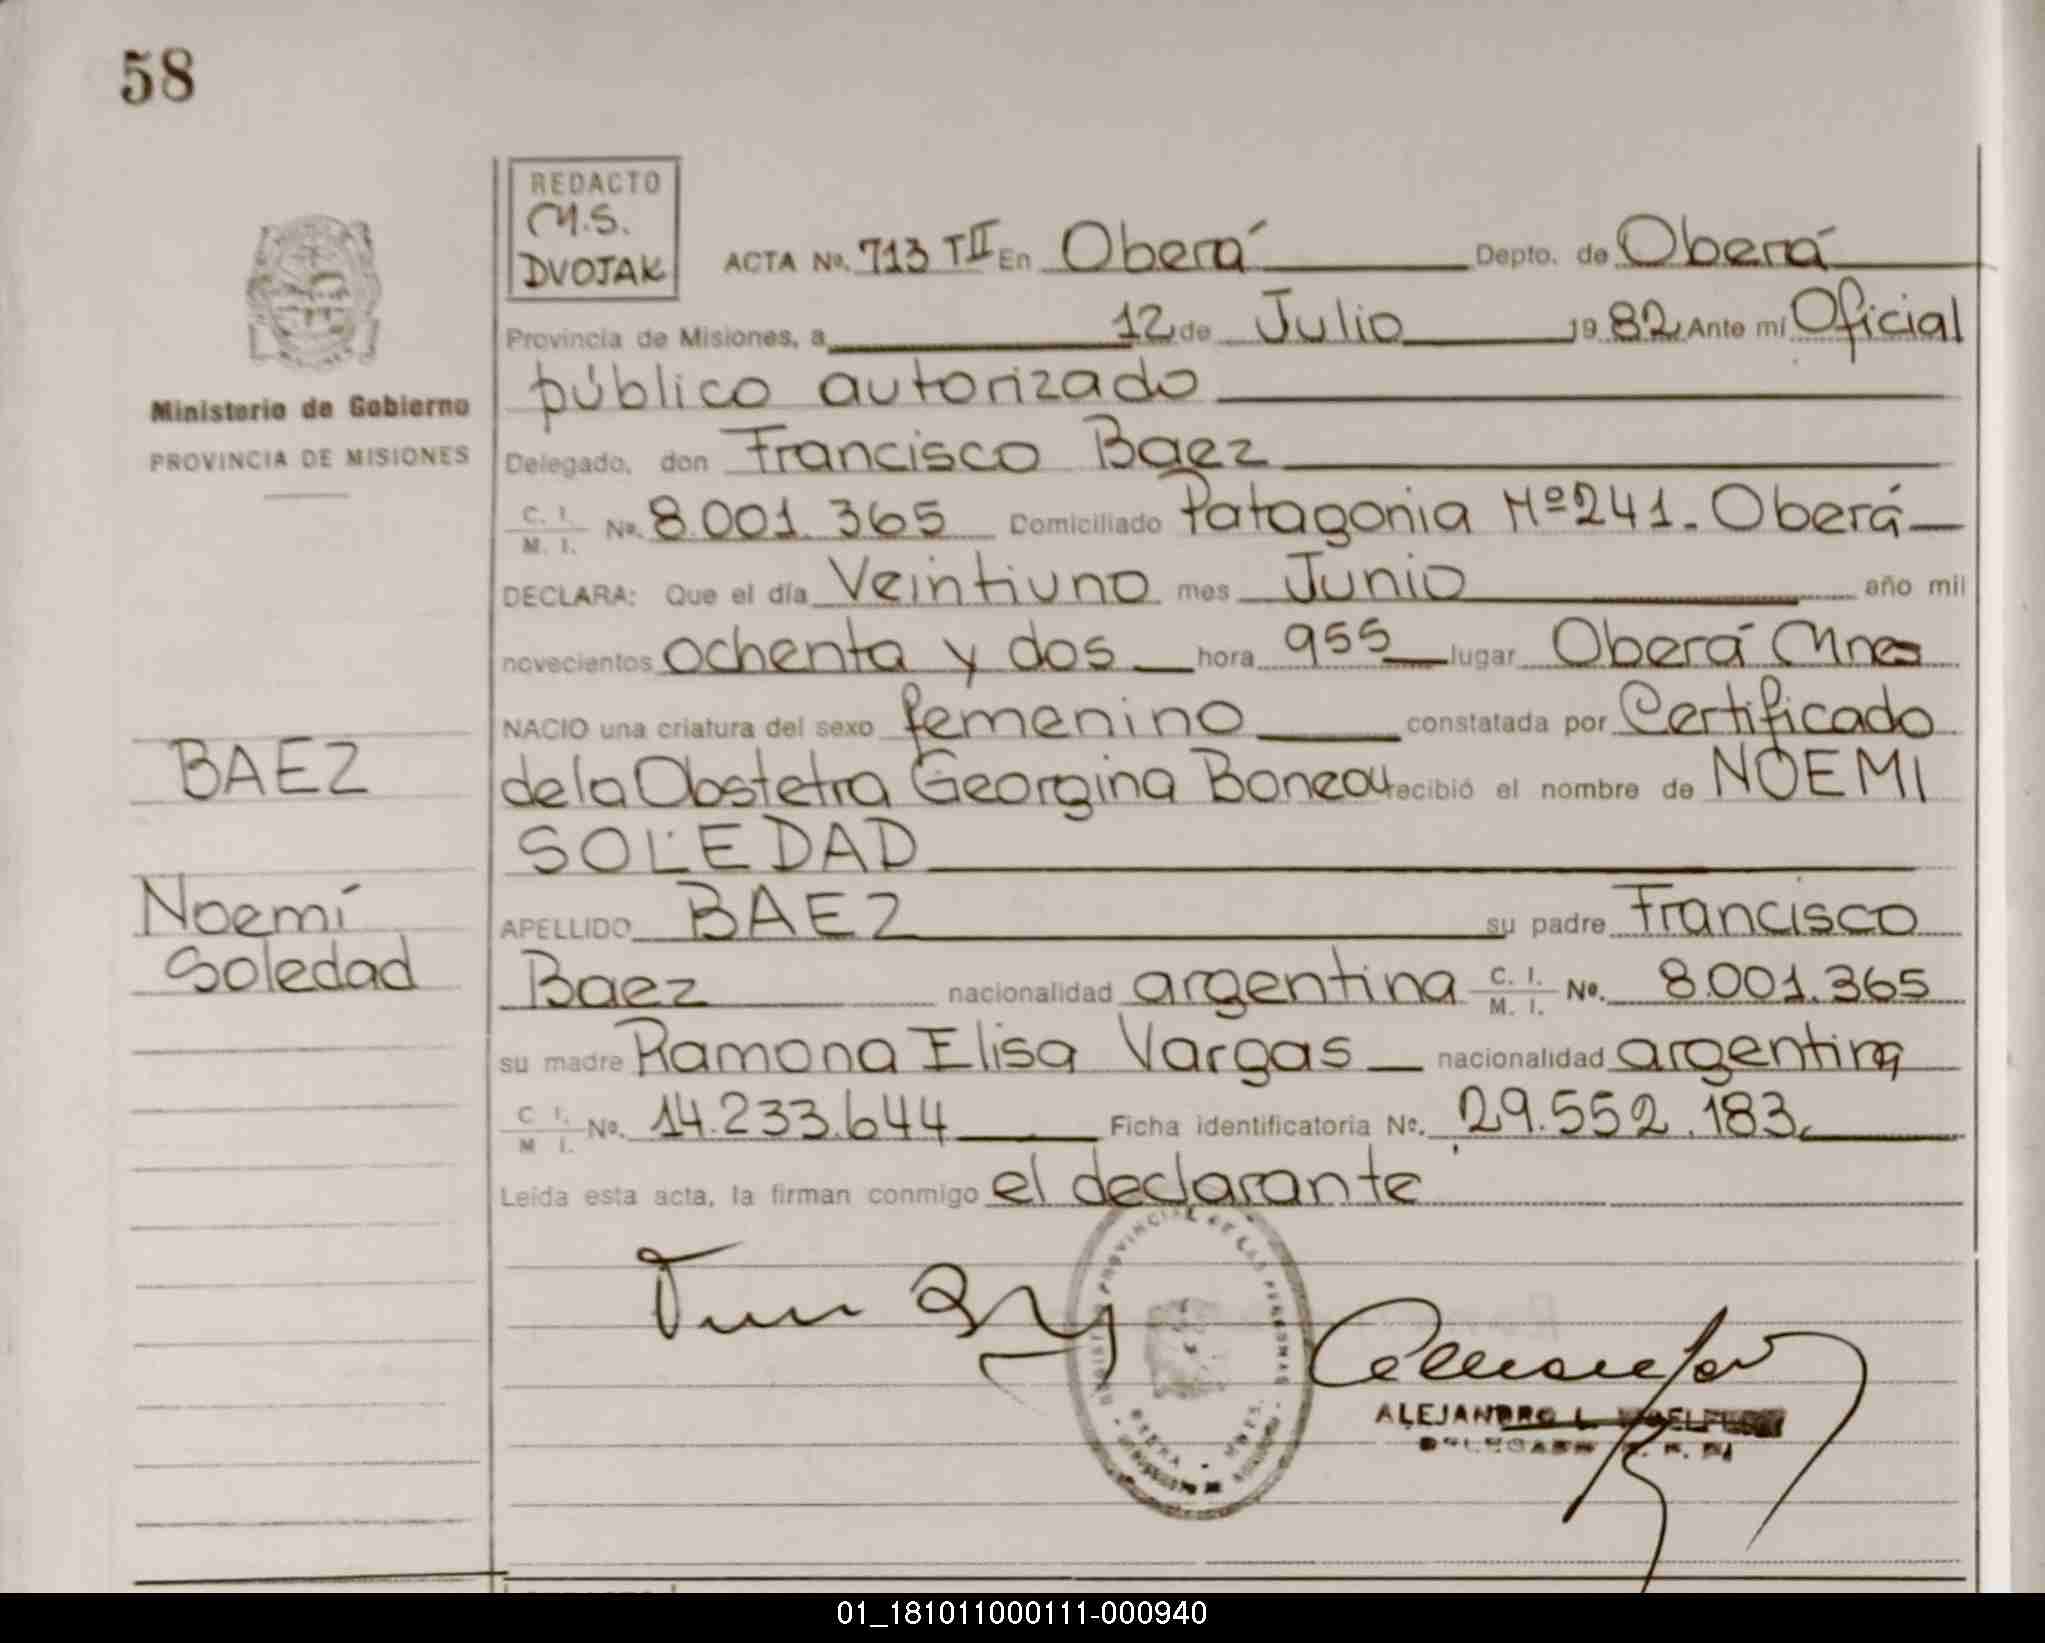 58
REDACTO
M.S.
DVOJAK
ACTA No. 713 TII En Oberá Depto. de Oberá
Provincia de Misiones, a 12 de Julio 1982 Ante mí Oficial
público autorizado
Ministerio de Gobierno
PROVINCIA DE MISIONES
Delegado, don Francisco Baez
C. I. / M. I. No. 8.001.365 Domiciliado Patagonia Nº 241. Oberá
DECLARA: Que el día Veintiuno mes Junio año mil
novecientos ochenta y dos hora 955 lugar Oberá Mnes
NACIO una criatura del sexo femenino constatada por Certificado
de la Obstetra Georgina recibió el nombre de NOEMI
SOLEDAD
BAEZ
Noemí
Soledad
APELLIDO BAEZ su padre Francisco
Baez nacionalidad argentina C. I. / M. I. No. 8.001.365
su madre Ramona Elisa Vargas nacionalidad argentina
C. I. / M. I. No. 14.233.644 Ficha identificatoria No. 29.552.183
Leída esta acta, la firman conmigo el declarante
REGISTRO PROVINCIAL DE LAS PERSONAS
OBERA - MNES.
ALEJANDRO L.
DELEGADO R. P.
01_181011000111-000940